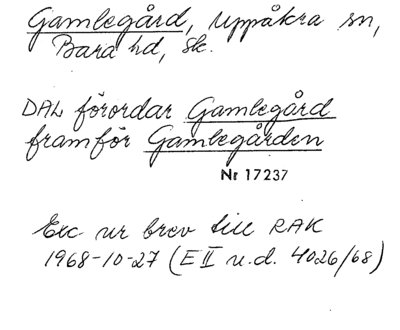 Gamlegård, Uppåkra sn,
Bara hd, Sk.
DAL förordar Gamlegård
framför Gamlegården
Nr 17237
Exc ur brev till RAK
1968-10-27 (E II u.d. 4026/68)